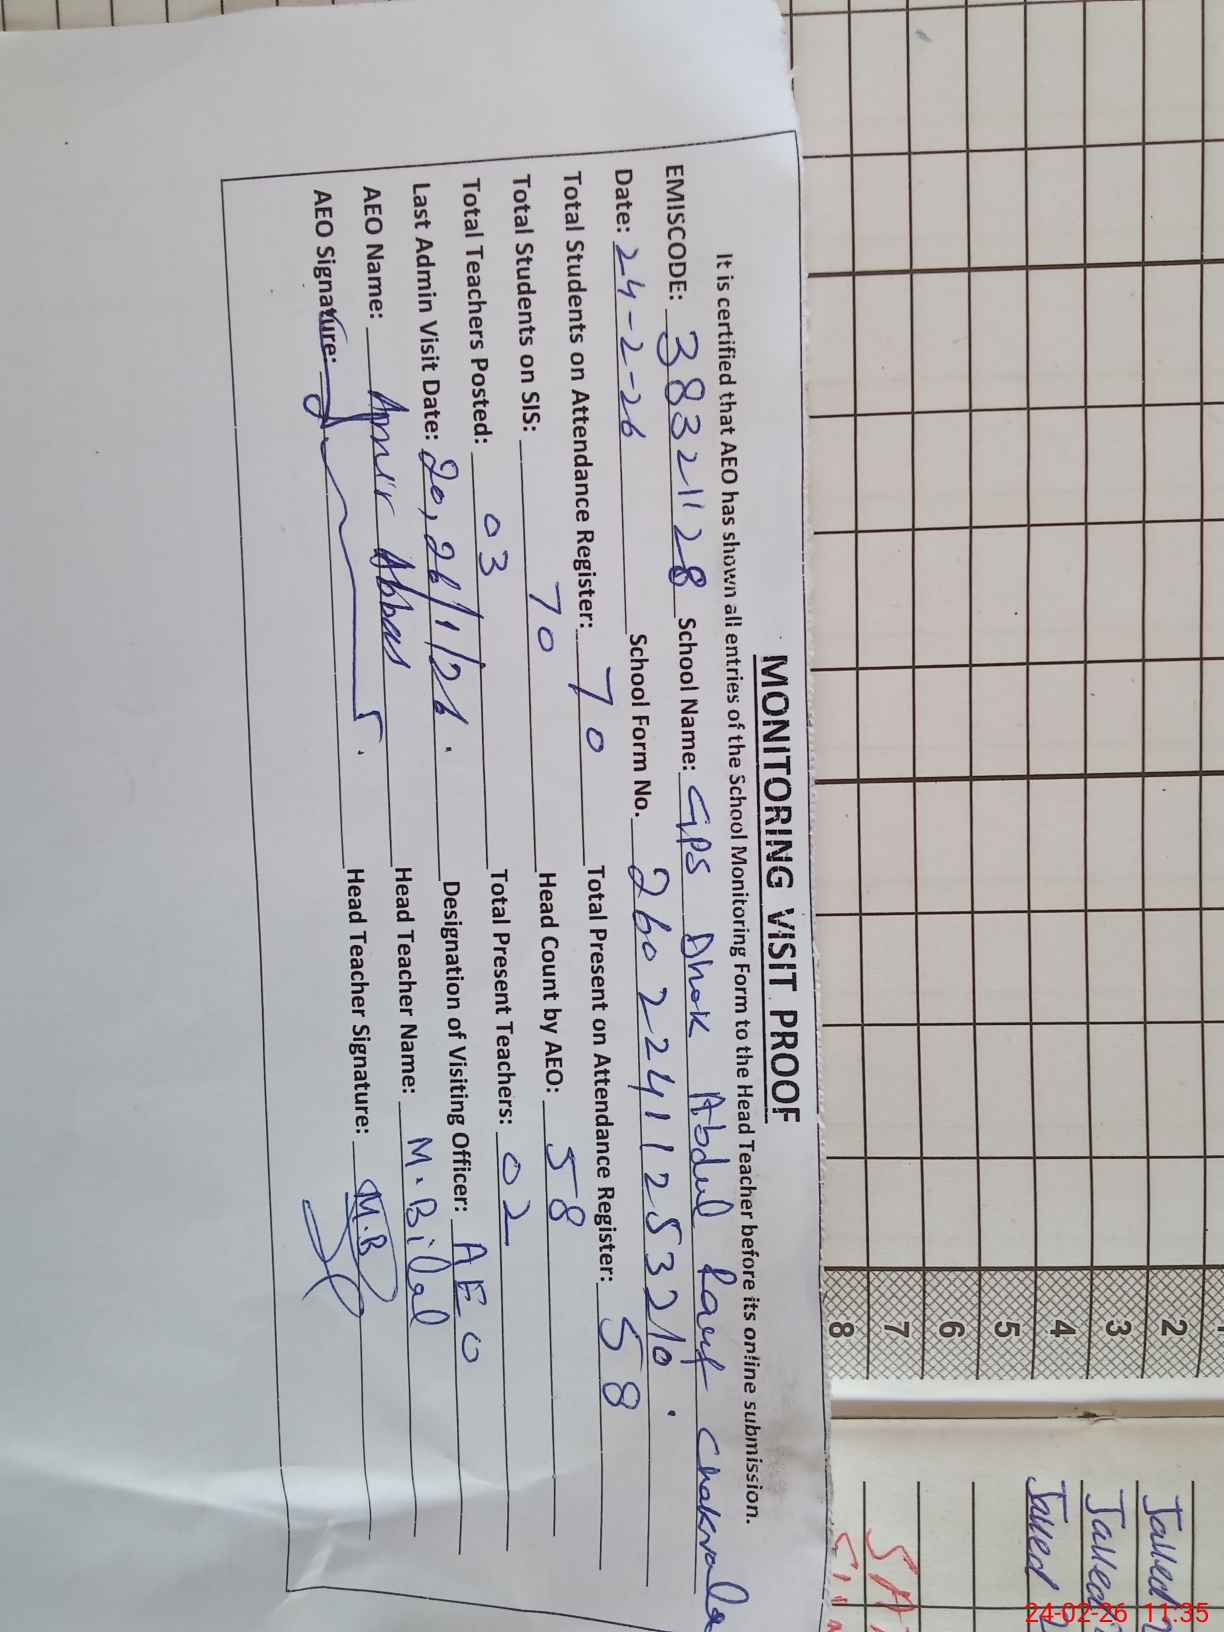 MONITORING VISIT PROOF
It is certified that AEO has shown all entries of the School Monitoring Form to the Head Teacher before its online submission.
EMISCODE: 38321128 School Name: GPS Dhok Abdul Rauf Chakrala
Date: 24-2-26 School Form No. 26022411253210.
Total Students on Attendance Register: 70 Total Present on Attendance Register: 58
Total Students on SIS: 70 Head Count by AEO: 58
Total Teachers Posted: 03 Total Present Teachers: 02
Last Admin Visit Date: 20, 26/1/26. Designation of Visiting Officer: AEO
AEO Name: Amir Abbas Head Teacher Name: M.Bilal
AEO Signature: Head Teacher Signature: M.B
2
3
4
5
6
7
8
24-02-26 11:35